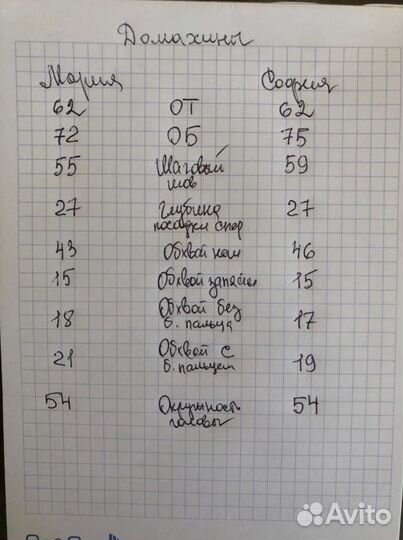 Домахины
Мария София
62 ОТ 62
72 ОБ 75
55 Шаговый 59
шов
27 Глубина 27
посадки спер.
43 Обхват ног 46
15 Обхват запястья 15
18 Обхват без 17
б. пальца
21 Обхват с 19
б. пальцем
54 Окружность 54
головы
Avito